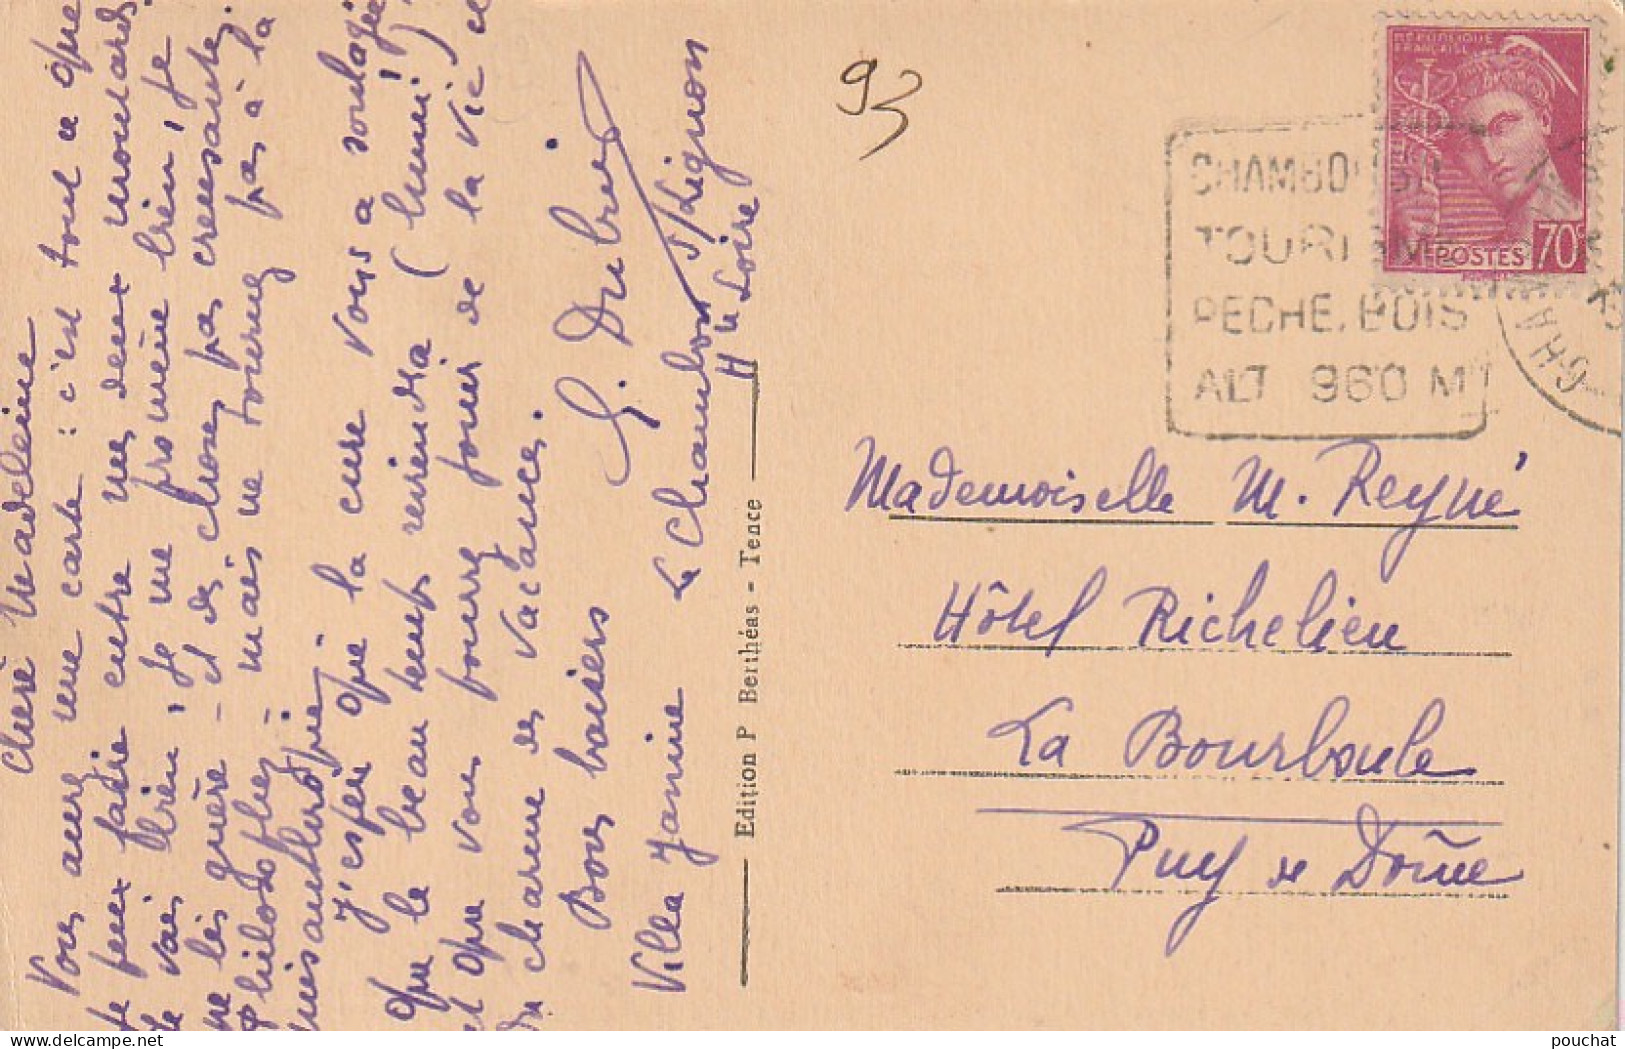 Chère Madeleine
Vous aurez une carte : c'est tout ce que
je peux faire entre mes deux moutards.
Je vais bien, je me promène bien, je
ne lis guère - et des choses pas creusantes.
philosophez - mais ne tournez pas à la
misanthropie.
J'espère que la cure vous a soulagée,
que le beau temps reviendra
et que vous pourrez jouir de la vie et
du charme des vacances.
Bons baisers
G. Dubrin
Villa Janine Le Chambon s/Lignon
Hte Loire
Edition P Berthéas - Tence
93
REPUBLIQUE
FRANÇAISE
POSTES 70c
CHAMBON SUR
TOURISME
PECHE. BOIS
ALT 960 M
CHA
Mademoiselle M. Reyné
Hôtel Richelieu
La Bourboule
Puy de Dôme
pouchat